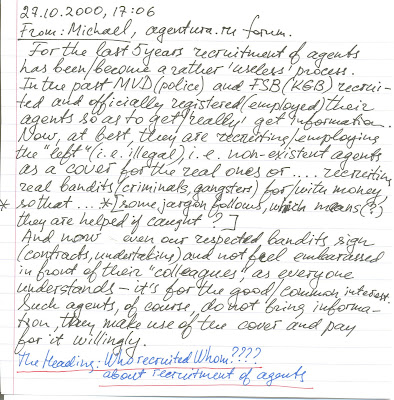 27.10.2000, 17:06
From: Michael, agentura.ru forum.
For the last 5 years recruitment of agents
has been/become a rather 'useless' process.
In the past MVD (police) and FSB (KGB) recrui-
ted and officially registered (employed) their
agents so as to get 'really' get information.
Now, at best, they are recruiting/employing
the "left" (i.e. illegal, i.e. non-existent agents
as a cover for the real ones or .... recruiting
real bandits (criminals, gangsters) for/with money,
* so that ... *[some jargon follows, which means (?)
they are helped if caught ? ]
And now even our respected bandits sign
(contracts, undertaking) and not feel embarassed
in front of their "colleagues", as everyone
understands – it's for the good/common interest.
Such agents, of course, do not bring informa-
tion, they make use of the cover and pay
for it willingly.
The Heading: Who recruited Whom????
about recruitment of agents